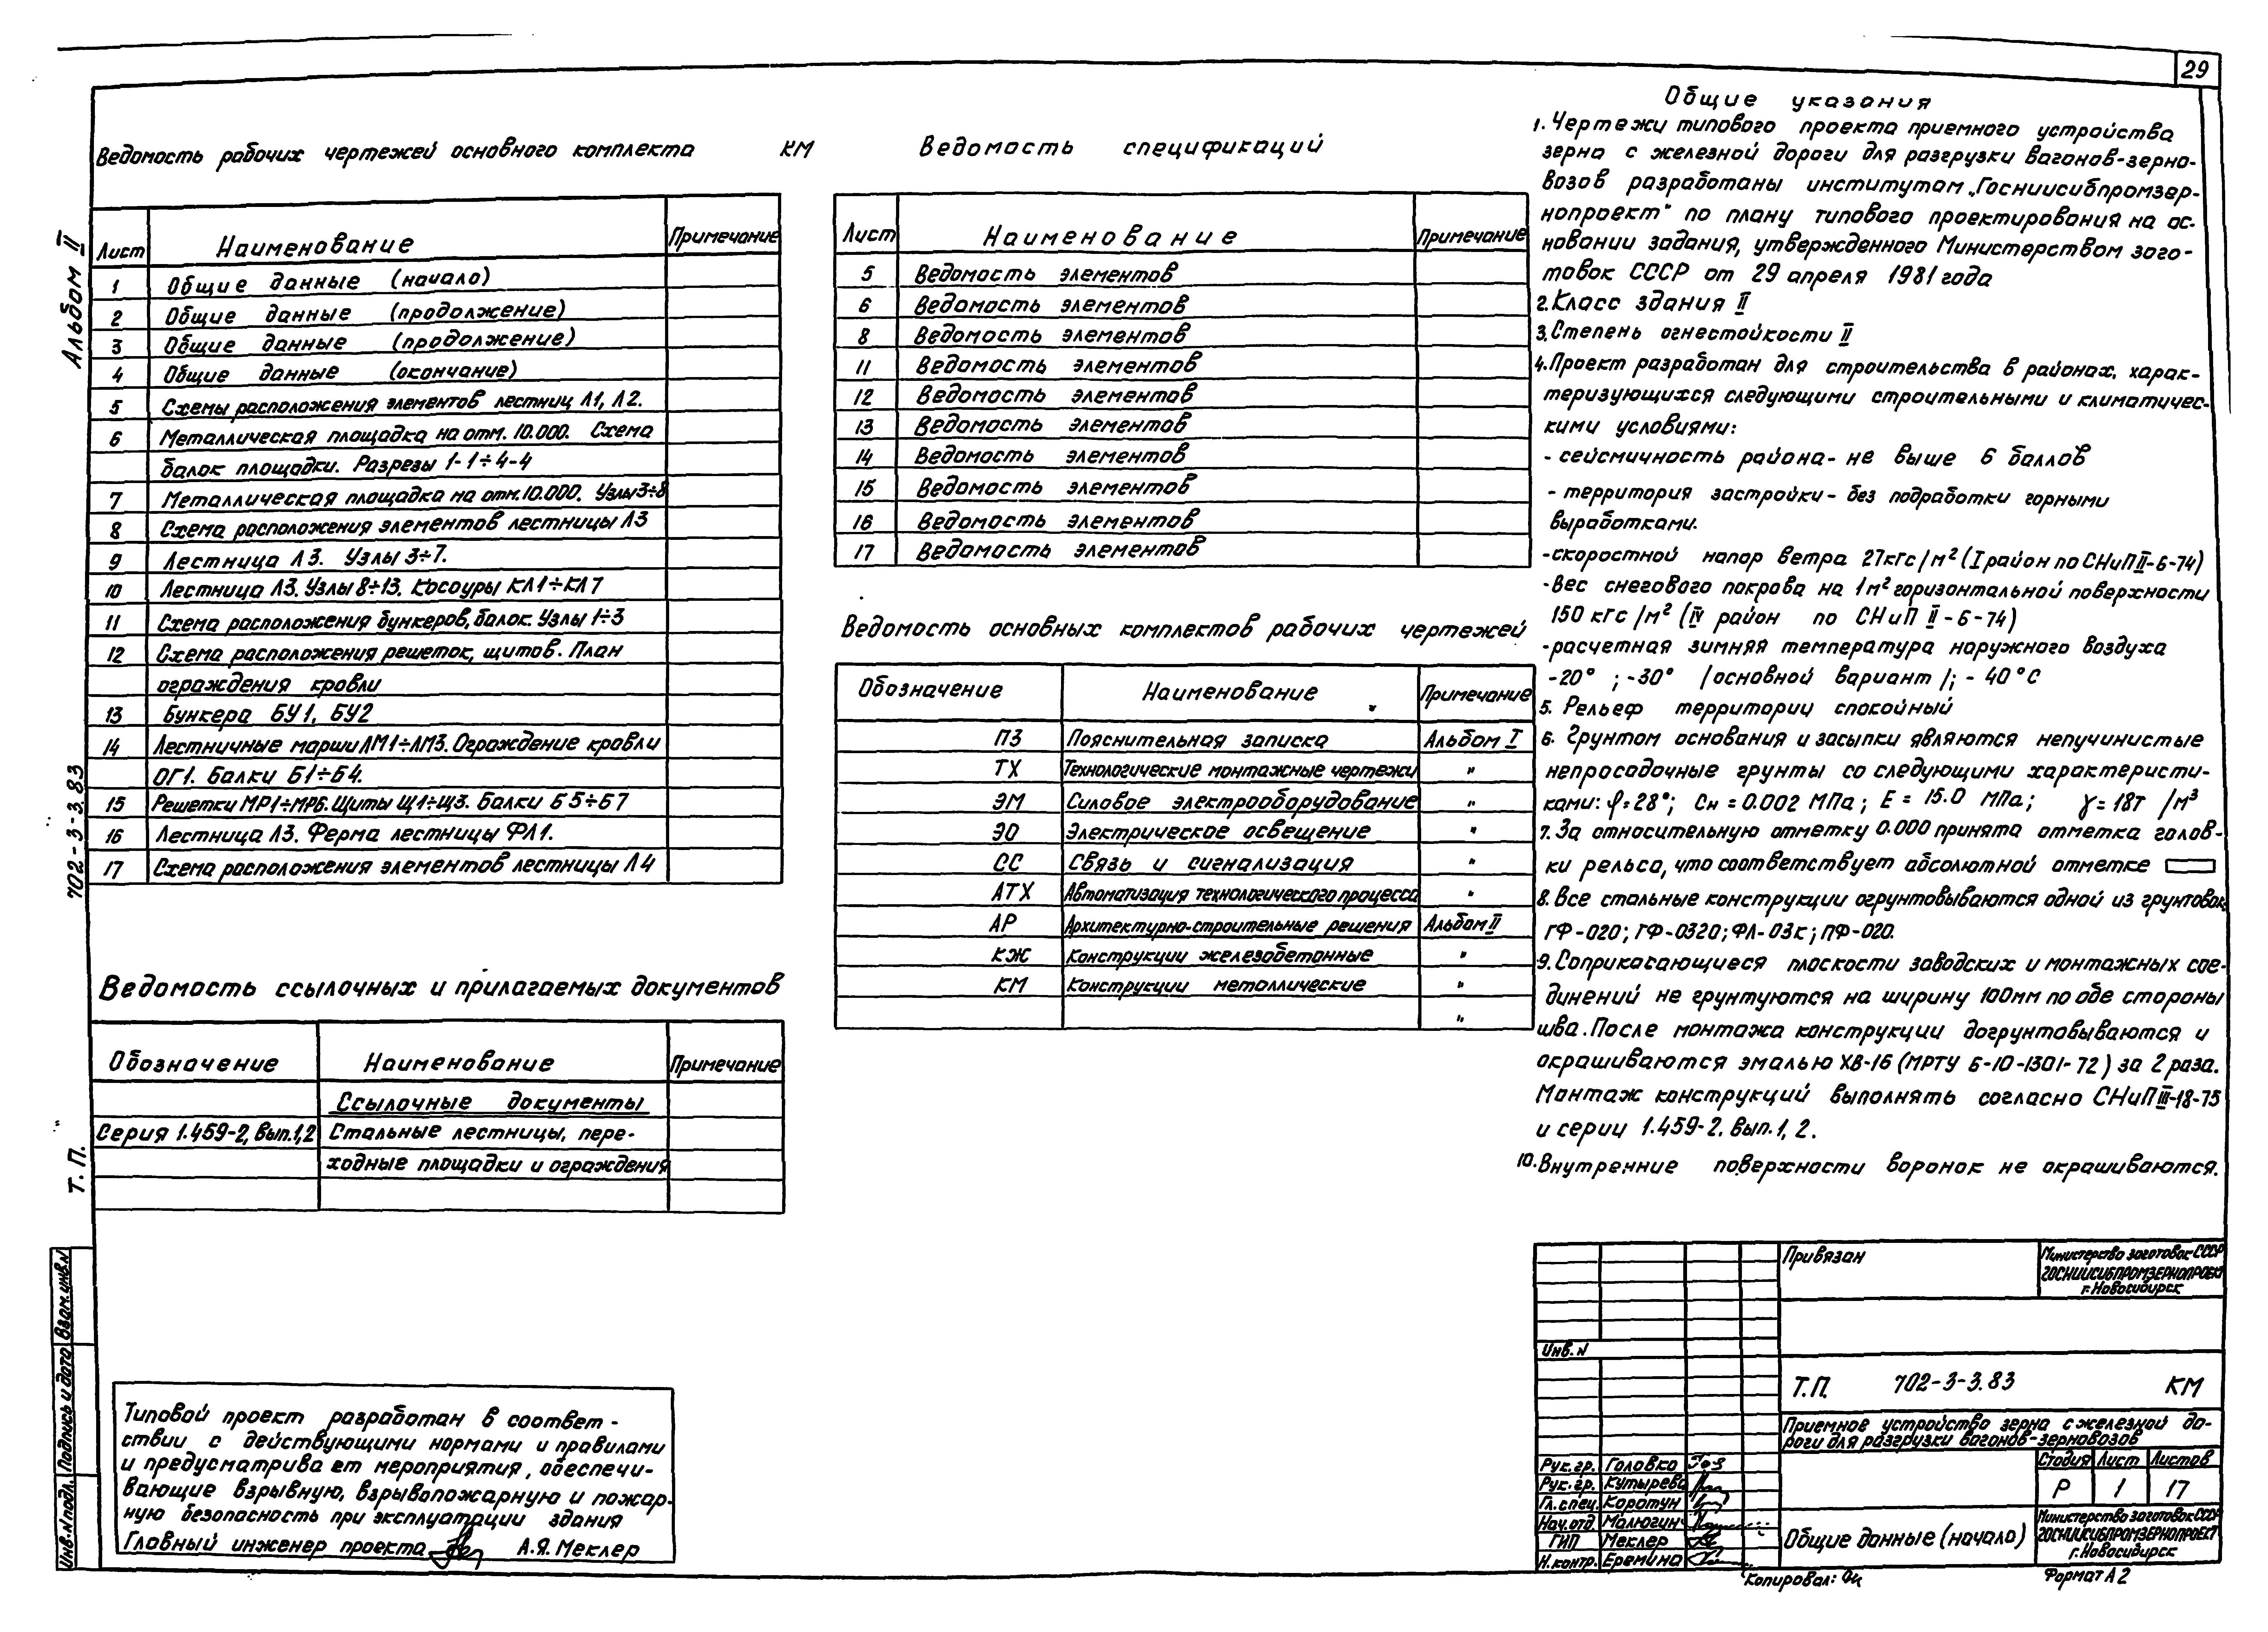 29
Альбом II
702-3-3.83
Т. П.
Инв.N подл. Подпись и дата Взам.инв.N
Ведомость рабочих чертежей основного комплекта КМ
Лист Наименование Примечание
1 Общие данные (начало)
2 Общие данные (продолжение)
3 Общие данные (продолжение)
4 Общие данные (окончание)
5 Схемы расположения элементов лестниц Л1, Л2.
6 Металлическая площадка на отм. 10.000. Схема
балок площадки. Разрезы 1-1÷4-4
7 Металлическая площадка на отм.10.000. Узлы 3÷8
8 Схема расположения элементов лестницы Л3
9 Лестница Л3. Узлы 3÷7.
10 Лестница Л3. Узлы 8÷13. Косоуры КЛ1÷КЛ7
11 Схема расположения бункеров, балок. Узлы 1÷3
12 Схема расположения решеток, щитов. План
ограждения кровли
13 Бункера БУ1, БУ2
14 Лестничные марши ЛМ1÷ЛМ3. Ограждение кровли
ОГ1. Балки Б1÷Б4.
15 Решетки МР1÷МР6. Щиты Щ1÷Щ3. Балки Б5÷Б7
16 Лестница Л3. Ферма лестницы ФЛ1.
17 Схема расположения элементов лестницы Л4
Ведомость ссылочных и прилагаемых документов
Обозначение Наименование Примечание
Ссылочные документы
Серия 1.459-2, вып.1,2 Стальные лестницы, пере-
ходные площадки и ограждения
Типовой проект разработан в соответ-
ствии с действующими нормами и правилами
и предусматривает мероприятия, обеспечи-
вающие взрывную, взрывопожарную и пожар-
ную безопасность при эксплуатации здания
Главный инженер проекта А.Я. Меклер
Ведомость спецификаций
Лист Наименование Примечание
5 Ведомость элементов
6 Ведомость элементов
8 Ведомость элементов
11 Ведомость элементов
12 Ведомость элементов
13 Ведомость элементов
14 Ведомость элементов
15 Ведомость элементов
16 Ведомость элементов
17 Ведомость элементов
Ведомость основных комплектов рабочих чертежей
Обозначение Наименование Примечание
ПЗ Пояснительная записка Альбом I
ТХ Технологические монтажные чертежи "
ЭМ Силовое электрооборудование "
ЭО Электрическое освещение "
СС Связь и сигнализация "
АТХ Автоматизация технологического процесса "
АР Архитектурно-строительные решения Альбом II
КЖ Конструкции железобетонные "
КМ Конструкции металлические "
"
Общие указания
1. Чертежи типового проекта приемного устройства
зерна с железной дороги для разгрузки вагонов-зерно-
возов разработаны институтам „Госниисибпромзер-
нопроект" по плану типового проектирования на ос-
новании задания, утвержденного Министерством заго-
товок СССР от 29 апреля 1981 года
2. Класс здания II
3. Степень огнестойкости II
4. Проект разработан для строительства в районах, харак-
теризующихся следующими строительными и климатичес-
кими условиями:
- сейсмичность района - не выше 6 баллов
- территория застройки - без подработки горными
выработками.
-скоростной напор ветра 27кгс/м² (I район по СНиП II-6-74)
-вес снегового покрова на 1м² горизонтальной поверхности
150 кгс/м² (IV район по СНиП II-6-74)
-расчетная зимняя температура наружного воздуха
-20° ; -30° /основной вариант/; - 40°С
5. Рельеф территории спокойный
6. Грунтом основания и засыпки являются непучинистые
непросадочные грунты со следующими характеристи-
ками: φ=28°; Сн = 0.002 МПа; Е = 15.0 МПа; γ = 18т /м³
7. За относительную отметку 0.000 принята отметка голов-
ки рельса, что соответствует абсолютной отметке
8. Все стальные конструкции огрунтовываются одной из грунтовок:
ГФ-020; ГФ-0320; ФЛ-03к; ПФ-020.
9. Соприкасающиеся плоскости заводских и монтажных сое-
динений не грунтуются на ширину 100мм по обе стороны
шва. После монтажа конструкции догрунтовываются и
окрашиваются эмалью ХВ-16 (МРТУ 6-10-1301-72) за 2 раза.
Монтаж конструкций выполнять согласно СНиП III-18-75
и серии 1.459-2. Вып. 1, 2.
10. Внутренние поверхности воронок не окрашиваются.
Привязан
Министерство заготовок СССР
ГОСНИИСИБПРОМЗЕРНОПРОЕКТ
г.Новосибирск
Инв. N
Т.П. 702-3-3.83 КМ
Приемное устройство зерна с железной до-
роги для разгрузки вагонов-зерновозов
Стадия Лист Листов
Р 1 17
Рук.гр. Головко
Рук.гр. Кутырева
Гл.спец. Коротун
Нач.отд. Малюгин
ГИП Меклер
Н.контр. Еремина
Общие данные (начало)
Министерство заготовок СССР
ГОСНИИСИБПРОМЗЕРНОПРОЕКТ
г.Новосибирск
Копировал:
Формат А2